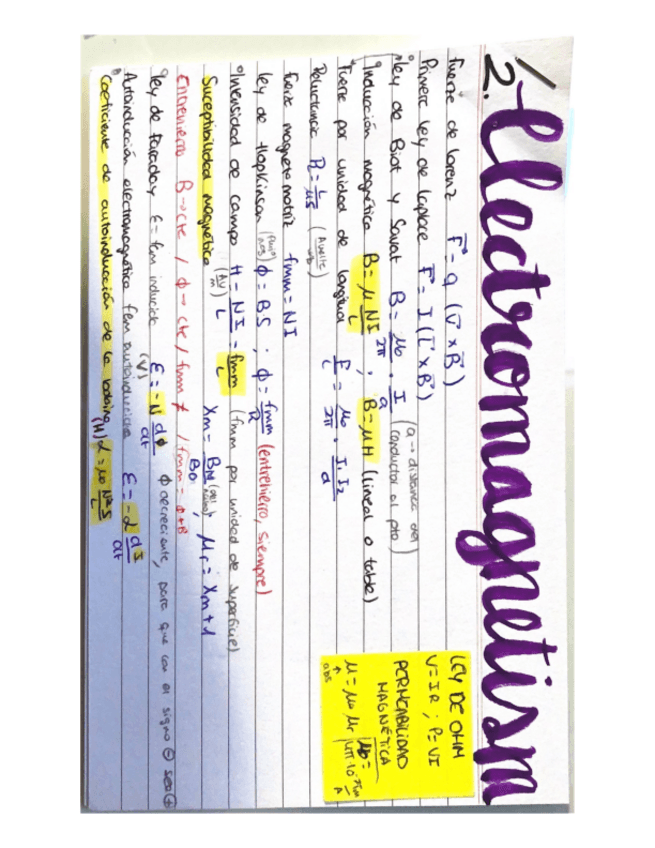 2. Electromagnetism
Fuerza de Lorenz F = q (v x B)
Primera ley de Laplace F = I (L x B)
ley de Biot y Savat B = μ0/2π · I/a (a → distancia del conductor al pto)
Inducción magnética B = μ NI/L B = μH (lineal o tabla)
Fuerza por unidad de longitud F/L = μ0/2π · I1 I2/d
Reluctancia R = L/μS (Avuelta/wb)
Fuerza magnetomotriz fmm = NI
ley de Hopkinson (flujo) (wb) ϕ = BS ; ϕ = fmm/R (entrehierro, siempre)
Intensidad de campo H = NI/L = fmm/L (fmm por unidad de superficie)
(AV/m)
Suceptibilidad magnética Xm = BM (del núcleo)/B0 ; μr = Xm + 1
Entrehierro B → cte / ϕ → cte / fmm ≠ / fmm =
ley de Faraday ε = fem inducida (V) ε = -N dϕ/dt ϕ decreciente, para que con el signo ⊖ sea ⊕
Autoinducción electromagnética fem autoinducida ε = -L dI/dt
Coeficiente de autoinducción de la bobina (H) L = μ N²S/L
LEY DE OHM
V = IR ; P = VI
PERMEABILIDAD
MAGNÉTICA
μ = μ0 μr μ0 =
abs 4π·10⁻⁷ Tm/A